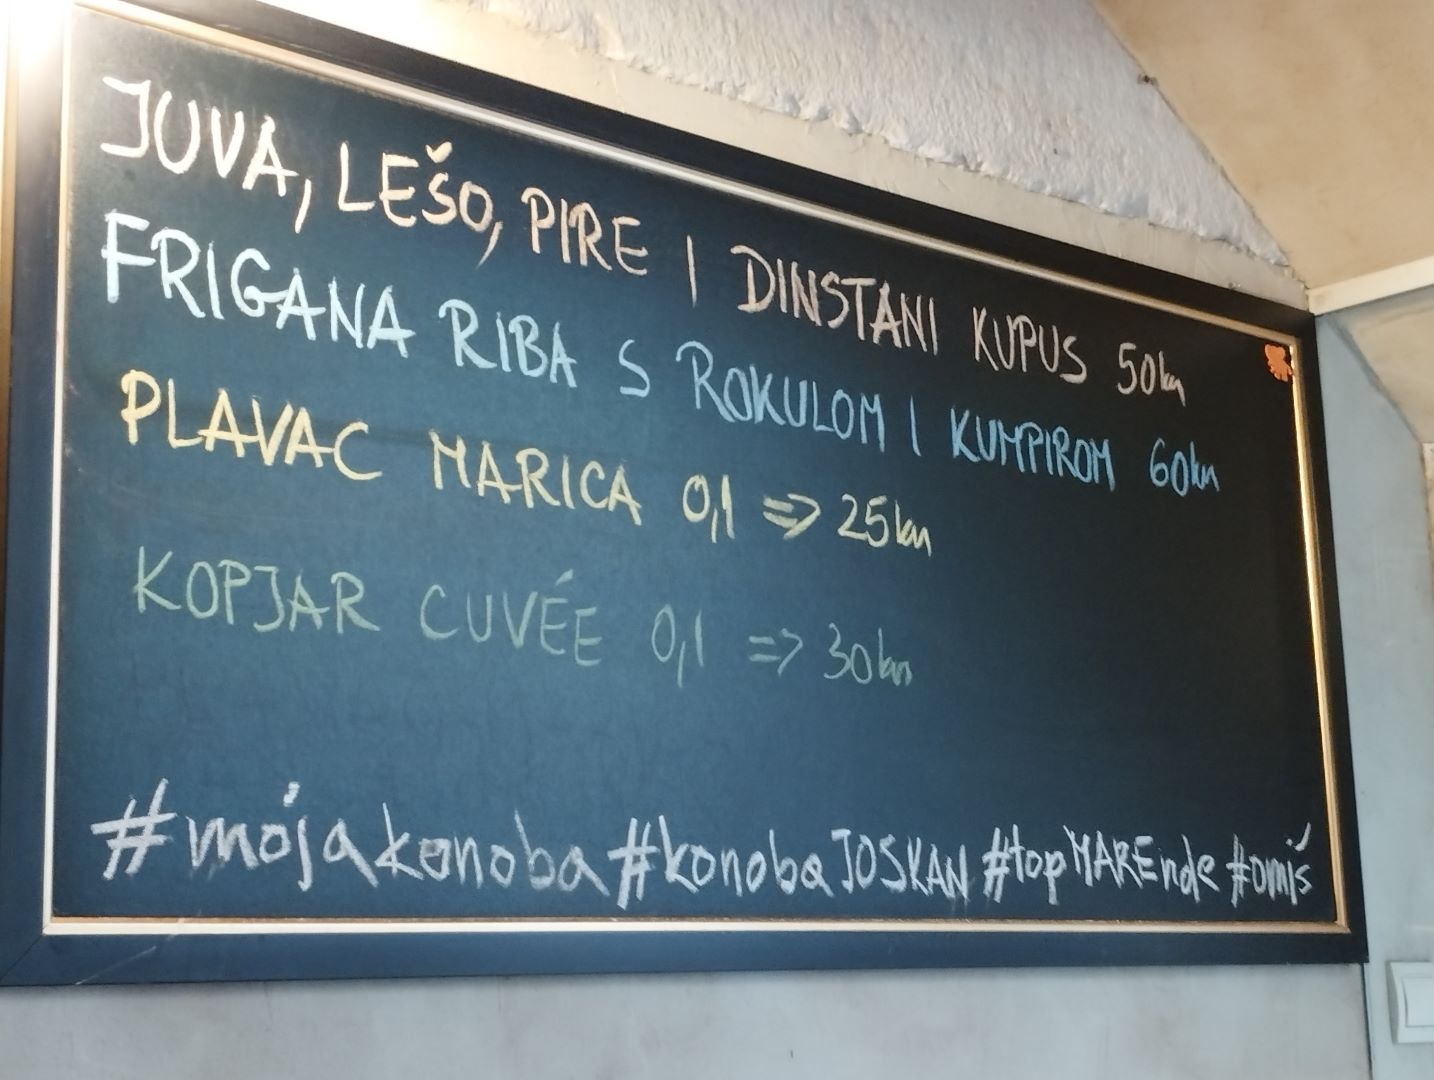 JUVA, LEŠO, PIRE I DINSTANI KUPUS 50kn
FRIGANA RIBA S ROKULOM I KUMPIROM 60kn
PLAVAC MARICA 0,1 => 25kn
KOPJAR CUVÉE 0,1 => 30kn
#mojakonoba #konobaJOSKAN #topMAREnde #omiš